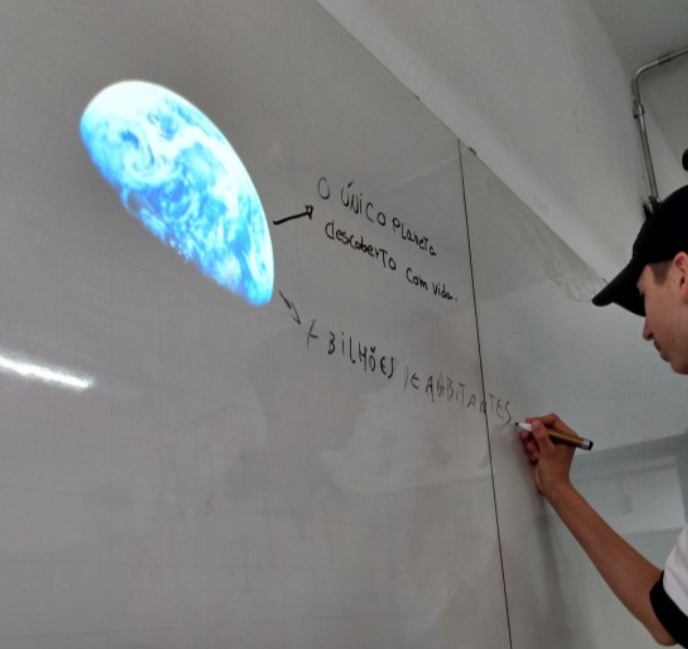 O ÚNICO PLANETA
descoberto com vida.
7 BILHÕES DE ABBITANTES